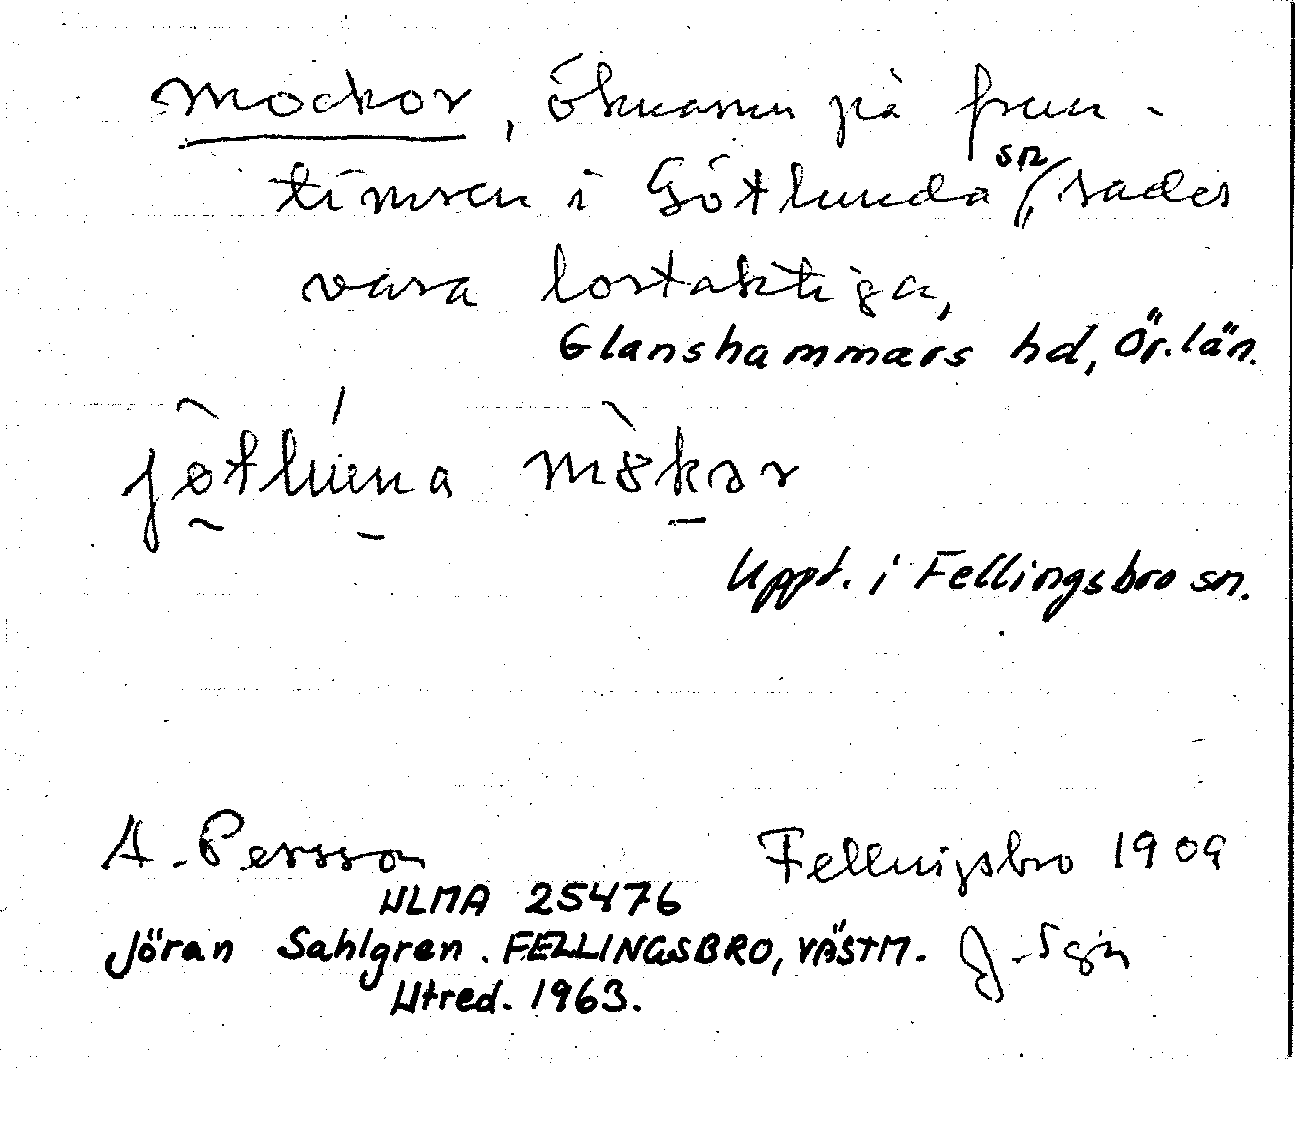 mockor, öknamn på frun-
timren i Götlunda sn, sades
vara lortaktiga,
Glanshammars hd, Ör. län.
jötluna mökar
Uppt. i Fellingsbro sn.
A. Persson Fellingsbro 1909
ULMA 25476
Jöran Sahlgren. FELLINGSBRO, VÄSTM. J. Sgn
Utred. 1963.